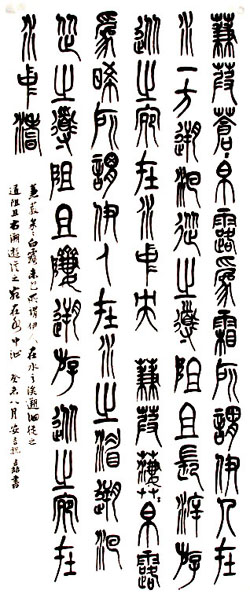 蒹葭蒼蒼白露為霜所謂伊人在
水一方遡洄從之道阻且長遡游
從之宛在水中央 蒹葭萋萋白露
為晞所謂伊人在水之湄遡洄
從之道阻且躋遡游從之宛在
水中坻
蒹葭采々白露未已所謂伊人在水之涘遡洄從之
道阻且右遡游從之宛在水中沚 癸未八月安吉書